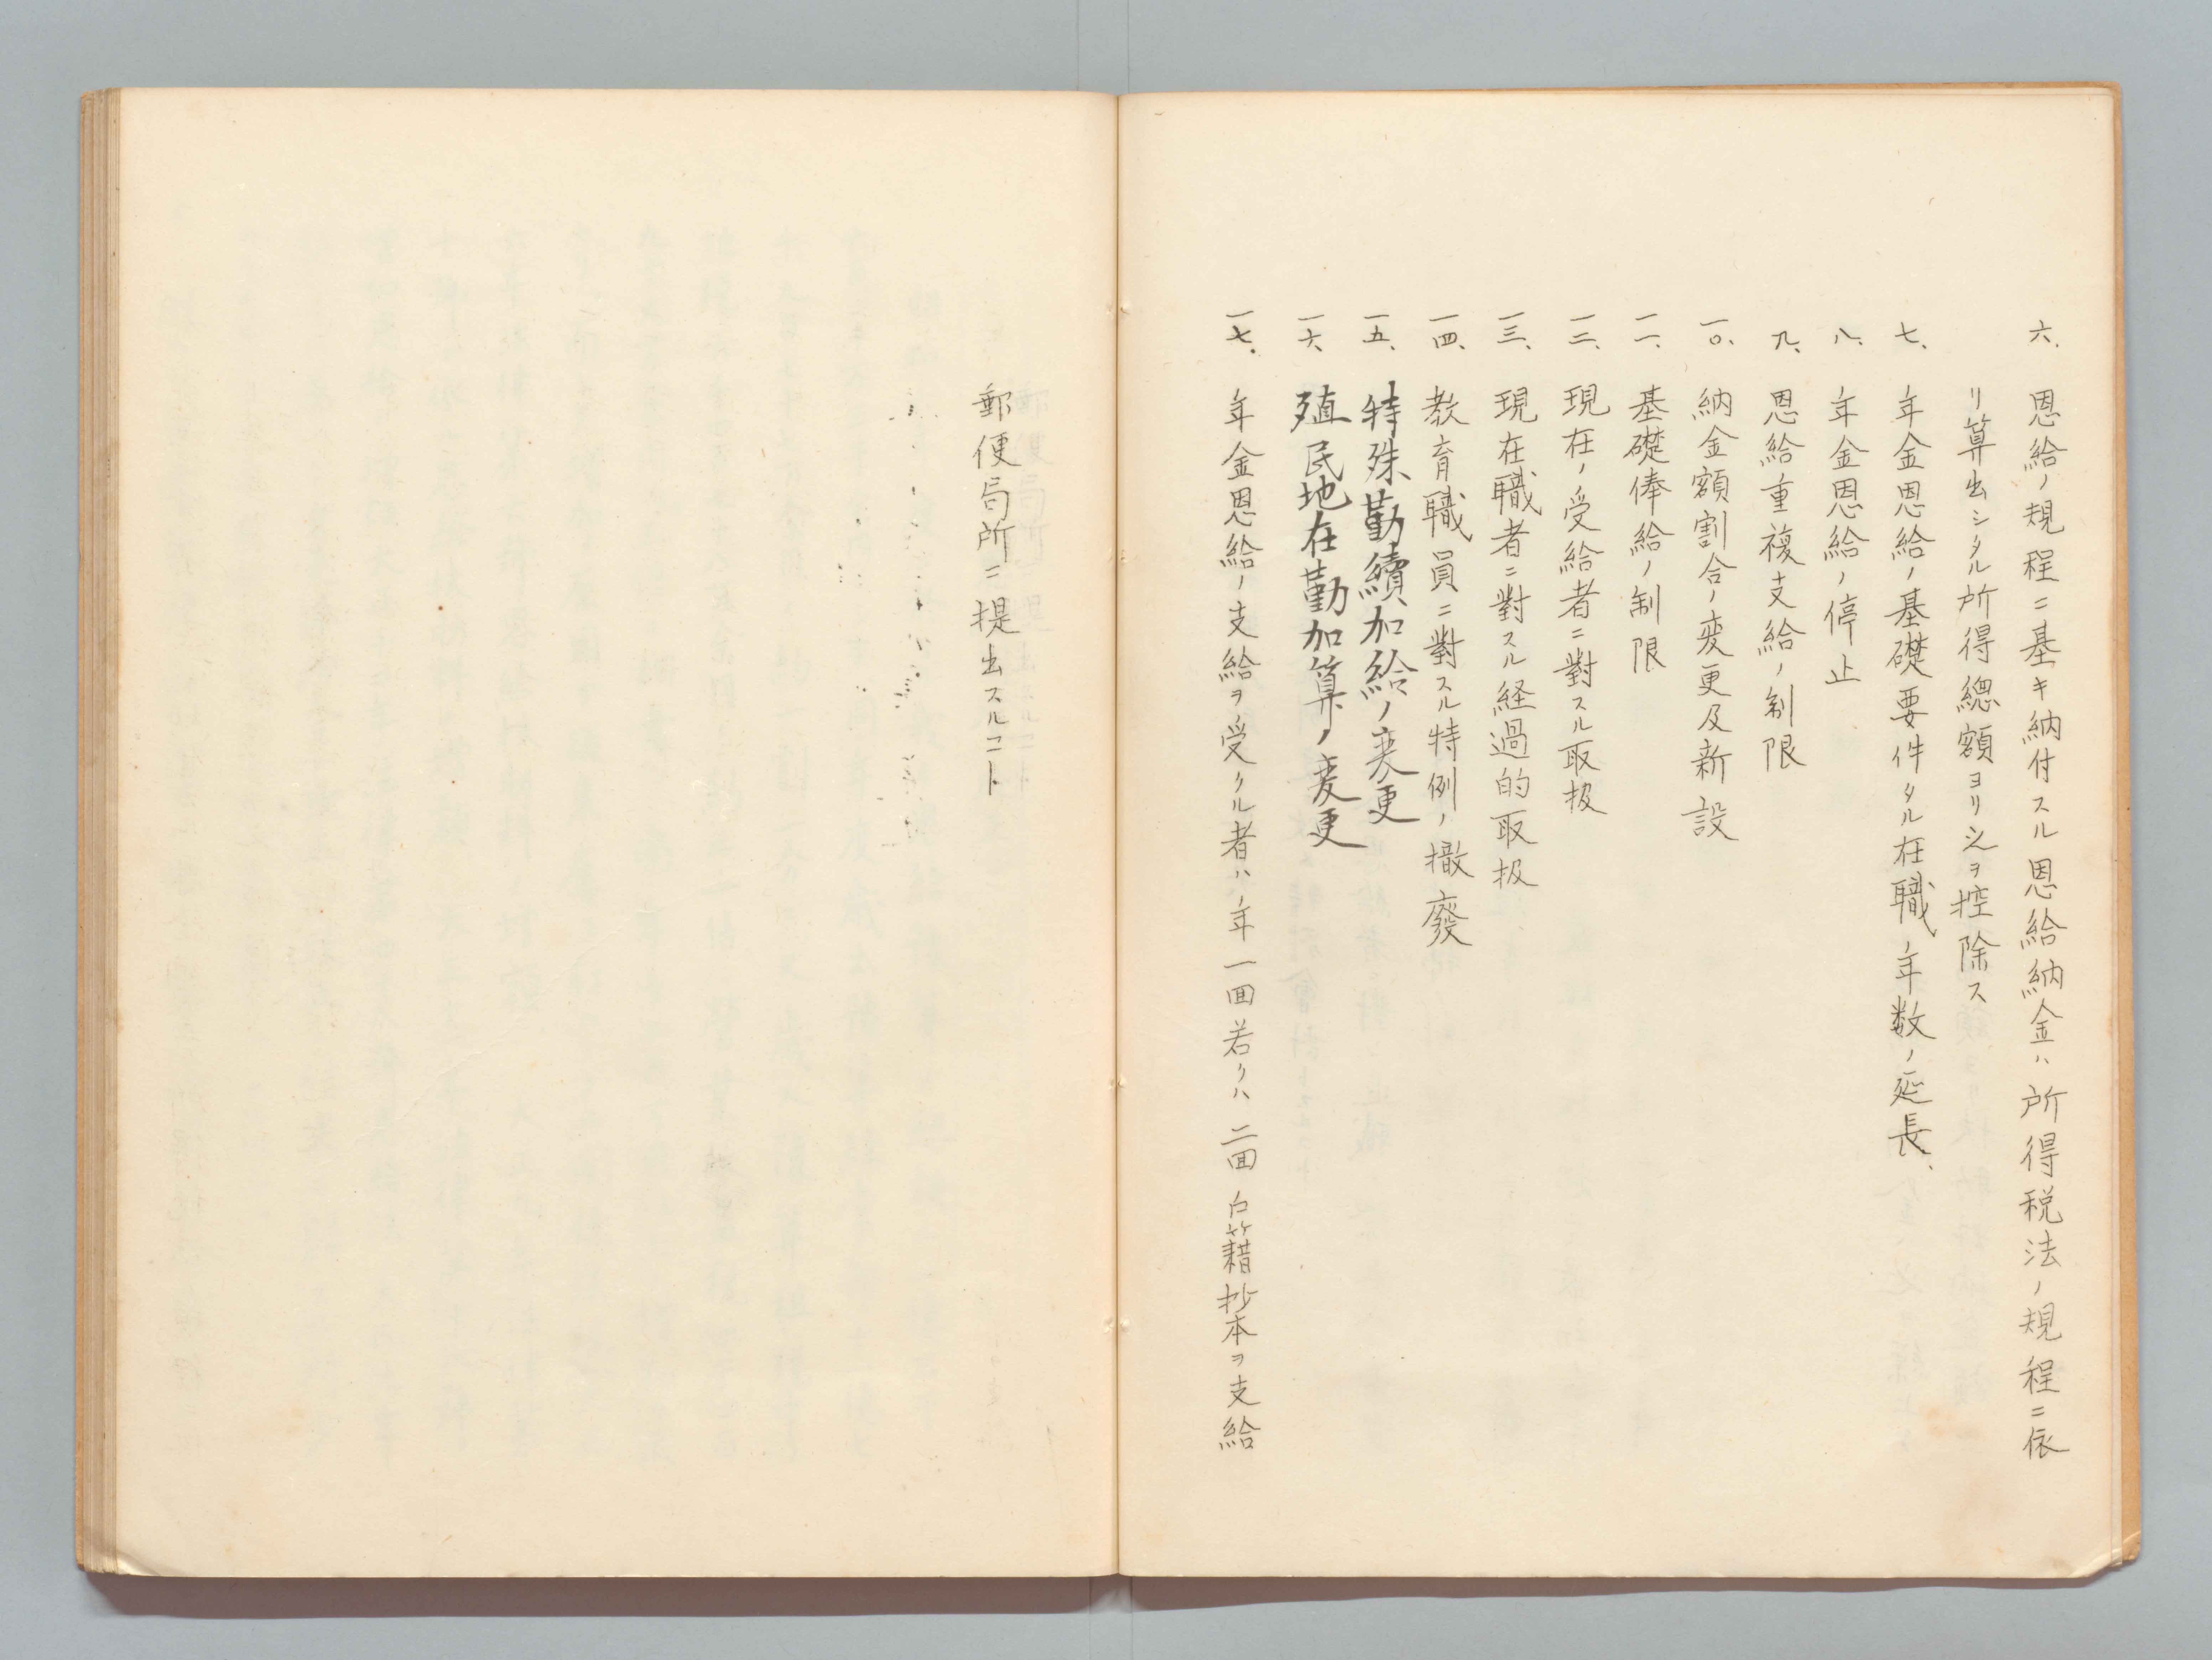 六、恩給ノ規程ニ基キ納付スル恩給納金ハ所得税法ノ規程ニ依
リ算出シタル所得總額ヨリ之ヲ控除ス
七、年金恩給ノ基礎要件タル在職ノ年数ノ延長、
八、年金恩給ノ停止
九、恩給重複支給ノ制限
一〇、納金額割合ノ変更及新設
一一、基礎俸給ノ制限
一二、現在ノ受給者ニ對スル取扱
一三、現在職者ニ對スル経過的取扱
一四、教育職員ニ對スル特例ノ撤廢
一五、特殊勤續加給ノ変更
一六、殖民地在勤加算ノ変更
一七、年金恩給ノ支給ヲ受クル者ハ年一回若クハ二回戸籍抄本ヲ支給
郵便局所ニ提出スルコト